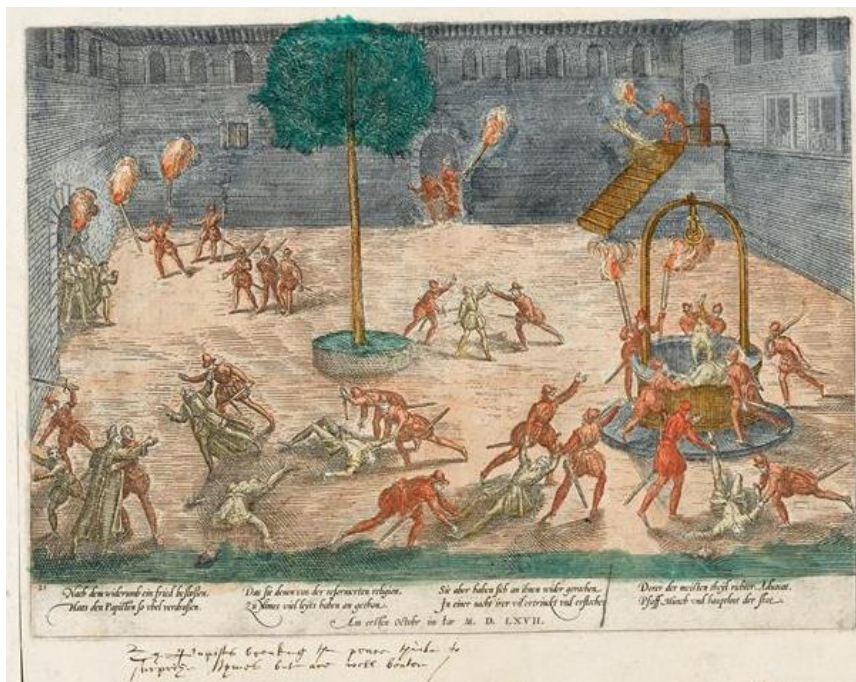 21
Nach dem widerumb ein fried beschloßen.
Hatt den Papisten so vbel verdroßen.
Das sie denen von der reformerten religien.
Zu Nimes viel leydts haben an gethon.
Sie aber haben sich an ihnen wider gerochen
In einer nacht irer vil ertrinckt vnd erstochen
Derer der meisten theyl richter, Aduocat.
Pfaff, Münch vnd hauptleut der stat.
Am ersten Octobr im Iar M. D. LXVII.
Papists breaking the peace thinke to
surprize Nymes but are well beaten